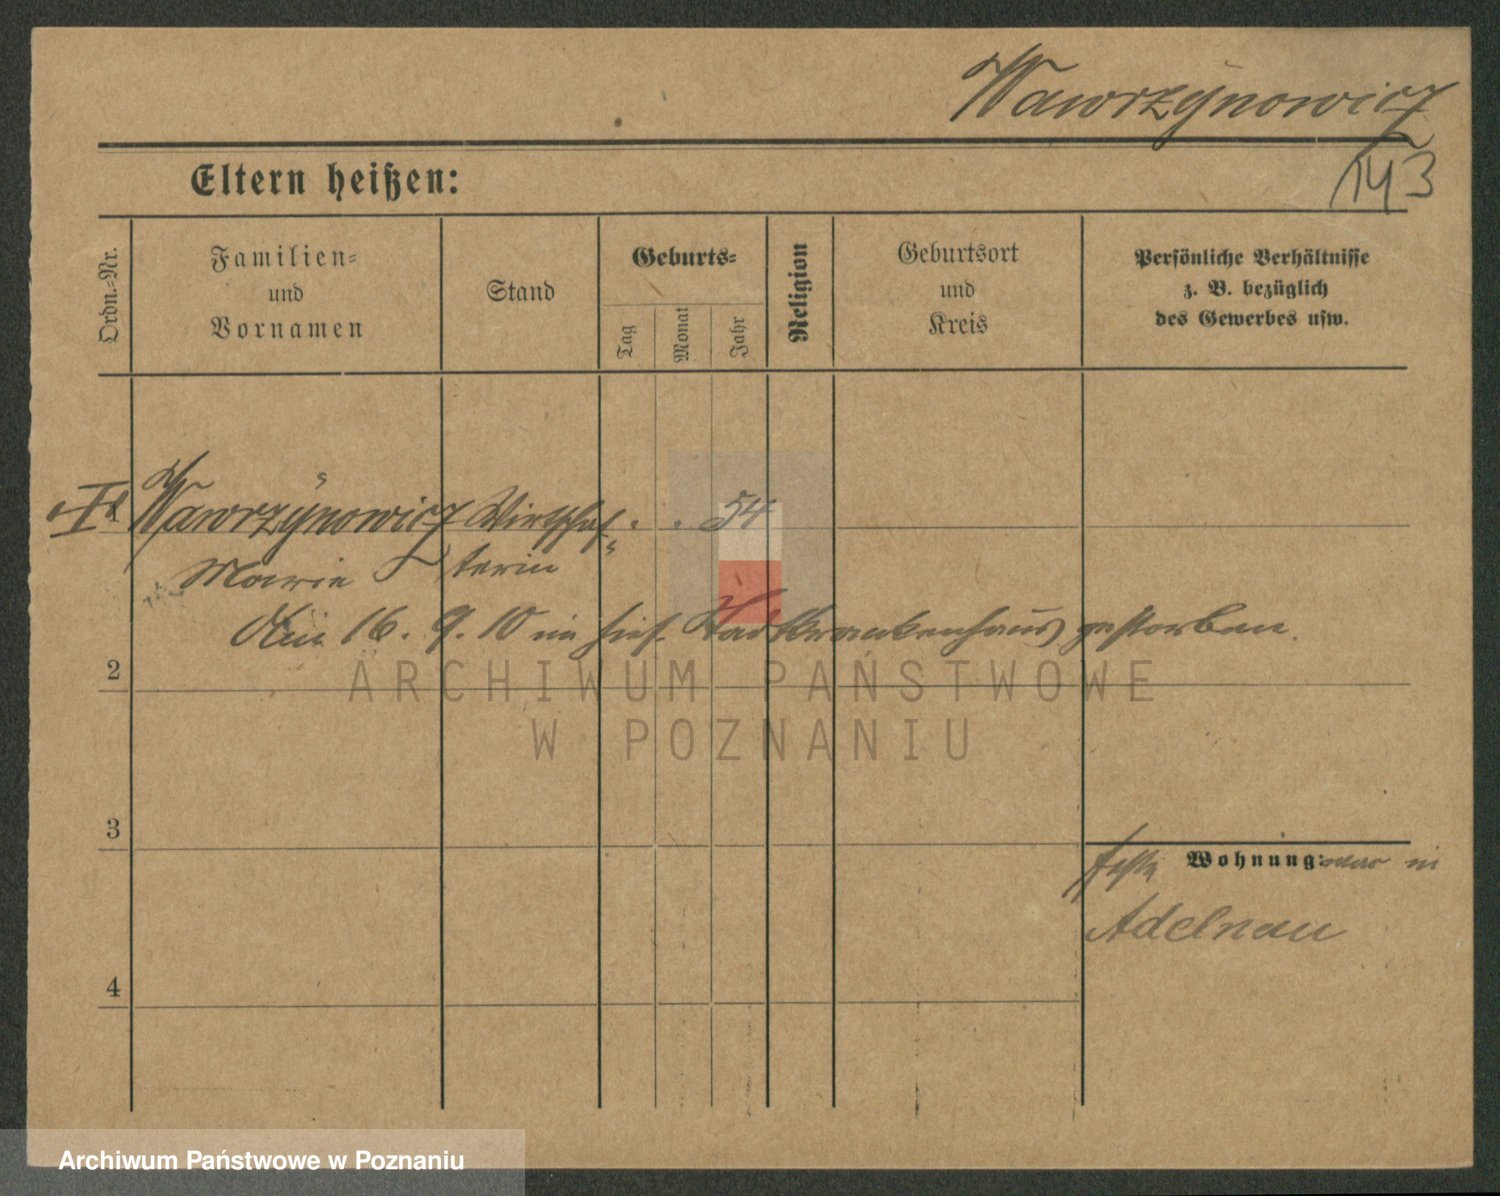 Wawrzynowicz
143
Eltern heißen:
Ordn.-Nr.
Familien-
und
Vornamen
Stand
Geburts-
Tag
Monat
Jahr
Religion
Geburtsort
und
Kreis
Persönliche Verhältnisse
z. B. bezüglich
des Gewerbes usw.
1 Wawrzynowicz Wirtschaf- . . 54
Marie terin
Am 16. 9. 10 im hies. Stadtkrankenhaus gestorben.
2
ARCHIWUM PAŃSTWOWE
W POZNANIU
3
feste Wohnung: war in
Adelnau
4
Archiwum Państwowe w Poznaniu